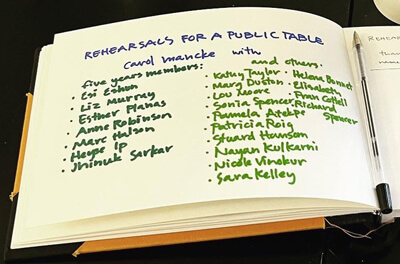 REHEARSALS FOR A PUBLIC TABLE
carol mancke with
five years members:
• Esi Eshun
• Liz Murray
• Esther Planas
• Anne Robinson
• Marc Hulson
• Heype Ip
• Jhinuk Sarkar
and others:
• Kathy Taylor
• Mary Duston
• Lou Moore
• Sonia Spencer
• Pamela Atekpe
• Patricia Reis
• Stuard Hanson
• Nayan Kulkarni
• Nicole Vinokur
• Sara Kelley
• Helena Bonnet
• Elisabeth
• Finn Cottell
• Richard
Spencer
REHEARSA